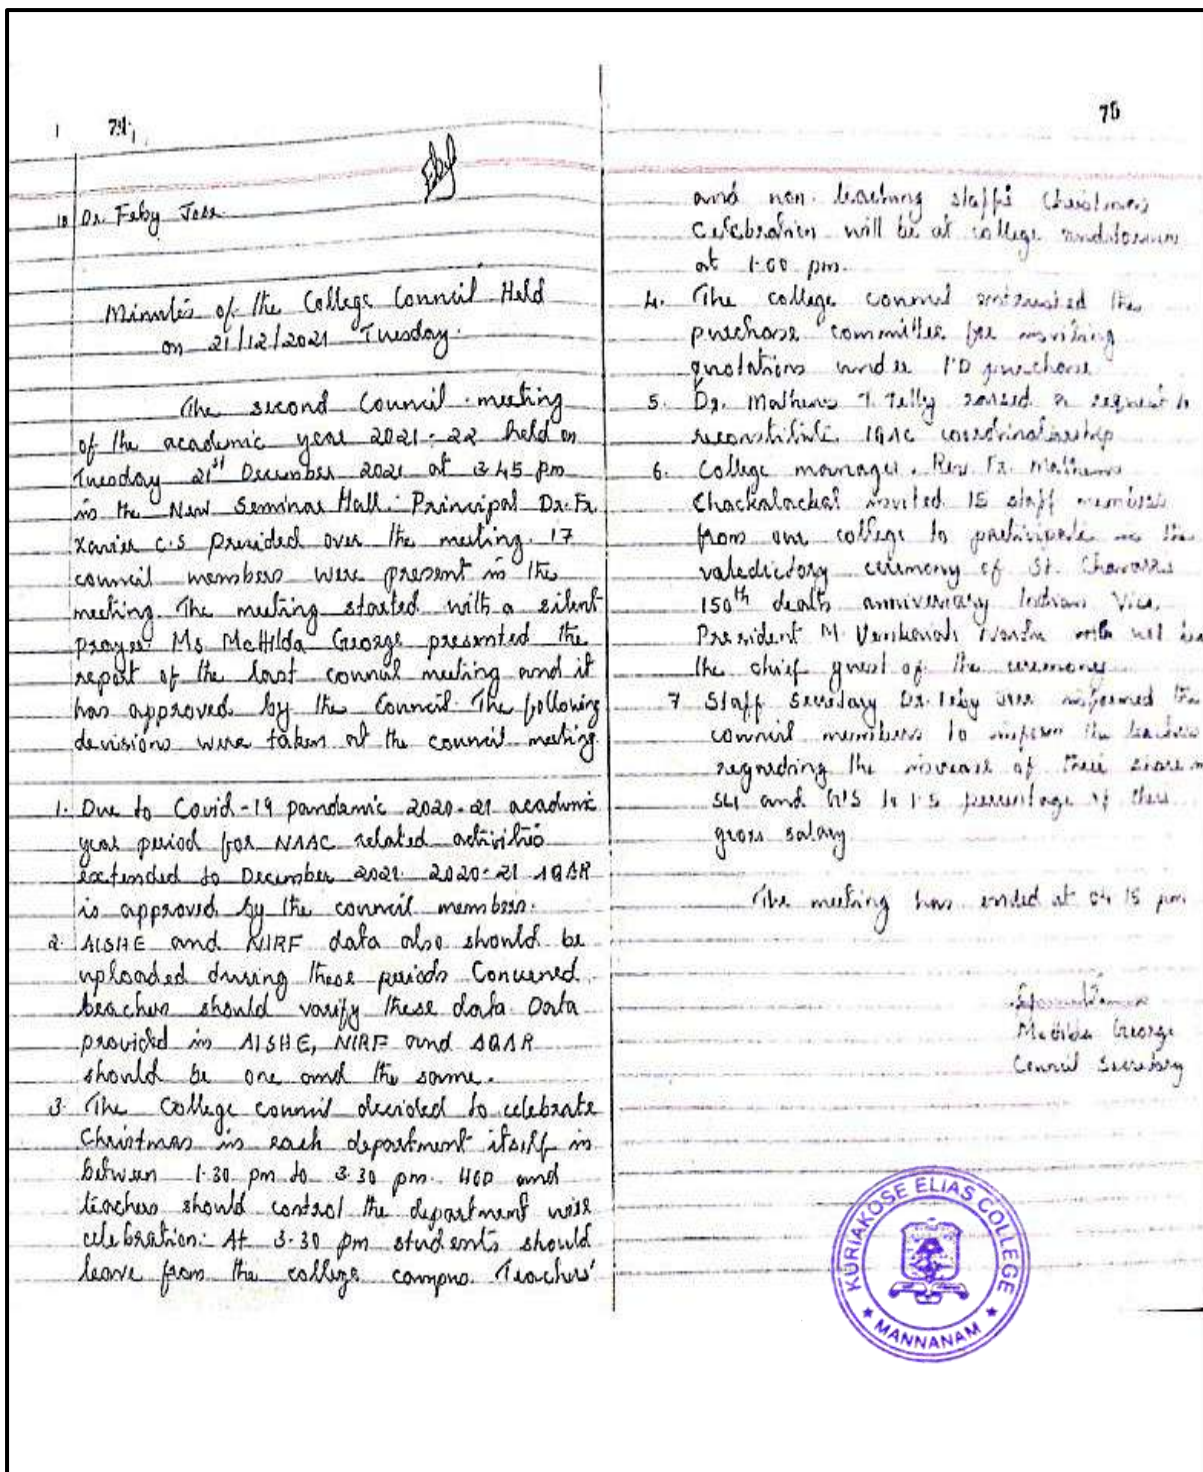 74
18 Dr. Feby Jose.
Minutes of the College Council Held
on 21/12/2021 Tuesday.
The second Council meeting
of the academic year 2021-22 held on
Tuesday 21st December 2021 at 3.45 pm
in the New Seminar Hall. Principal Dr. Fr.
Xavier C.S presided over the meeting. 17
council members were present in the
meeting. The meeting started with a silent
prayer. Ms. Mathilda George presented the
report of the last council meeting and it
has approved by the Council. The following
decisions were taken at the council meeting.
1. Due to Covid-19 pandemic 2020-21 academic
year period for NAAC related activities
extended to December 2021. 2020-21 AQAR
is approved by the council members.
2. AISHE and NIRF data also should be
uploaded during these periods. Concerned
teachers should varify these data. Data
provided in AISHE, NIRF and AQAR
should be one and the same.
3. The College council decided to celebrate
Christmas in each department itself in
between 1.30 pm to 3.30 pm. HOD and
teachers should control the department wise
celebration. At 3.30 pm students should
leave from the college campus. Teachers'
75
and non teaching staff's Christmas
Celebration will be at college auditorium
at 1.00 pm.
4. The college council entrusted the
purchase committee for inviting
quotations under PD purchase
5. Dr. Mathews T. Telly raised a request to
reconstitute IQAC coordinatorship
6. College manager, Rev. Fr. Mathews
Chackalackal invited 15 staff members
from our college to participate in the
valedictory ceremony of St. Chavara's
150th death anniversary Indian Vice
President M. Venkaiah Naidu will
the chief guest of the ceremony
7 Staff Secretary Dr. Feby Jose informed the
council members to inform the teachers
regarding the increase of their share in
SLI and GIS to 1.5 percentage of their
gross salary.
The meeting has ended at 04 15 pm
Mathilda George
Council Secretary
KURIAKOSE ELIAS COLLEGE
★ MANNANAM ★